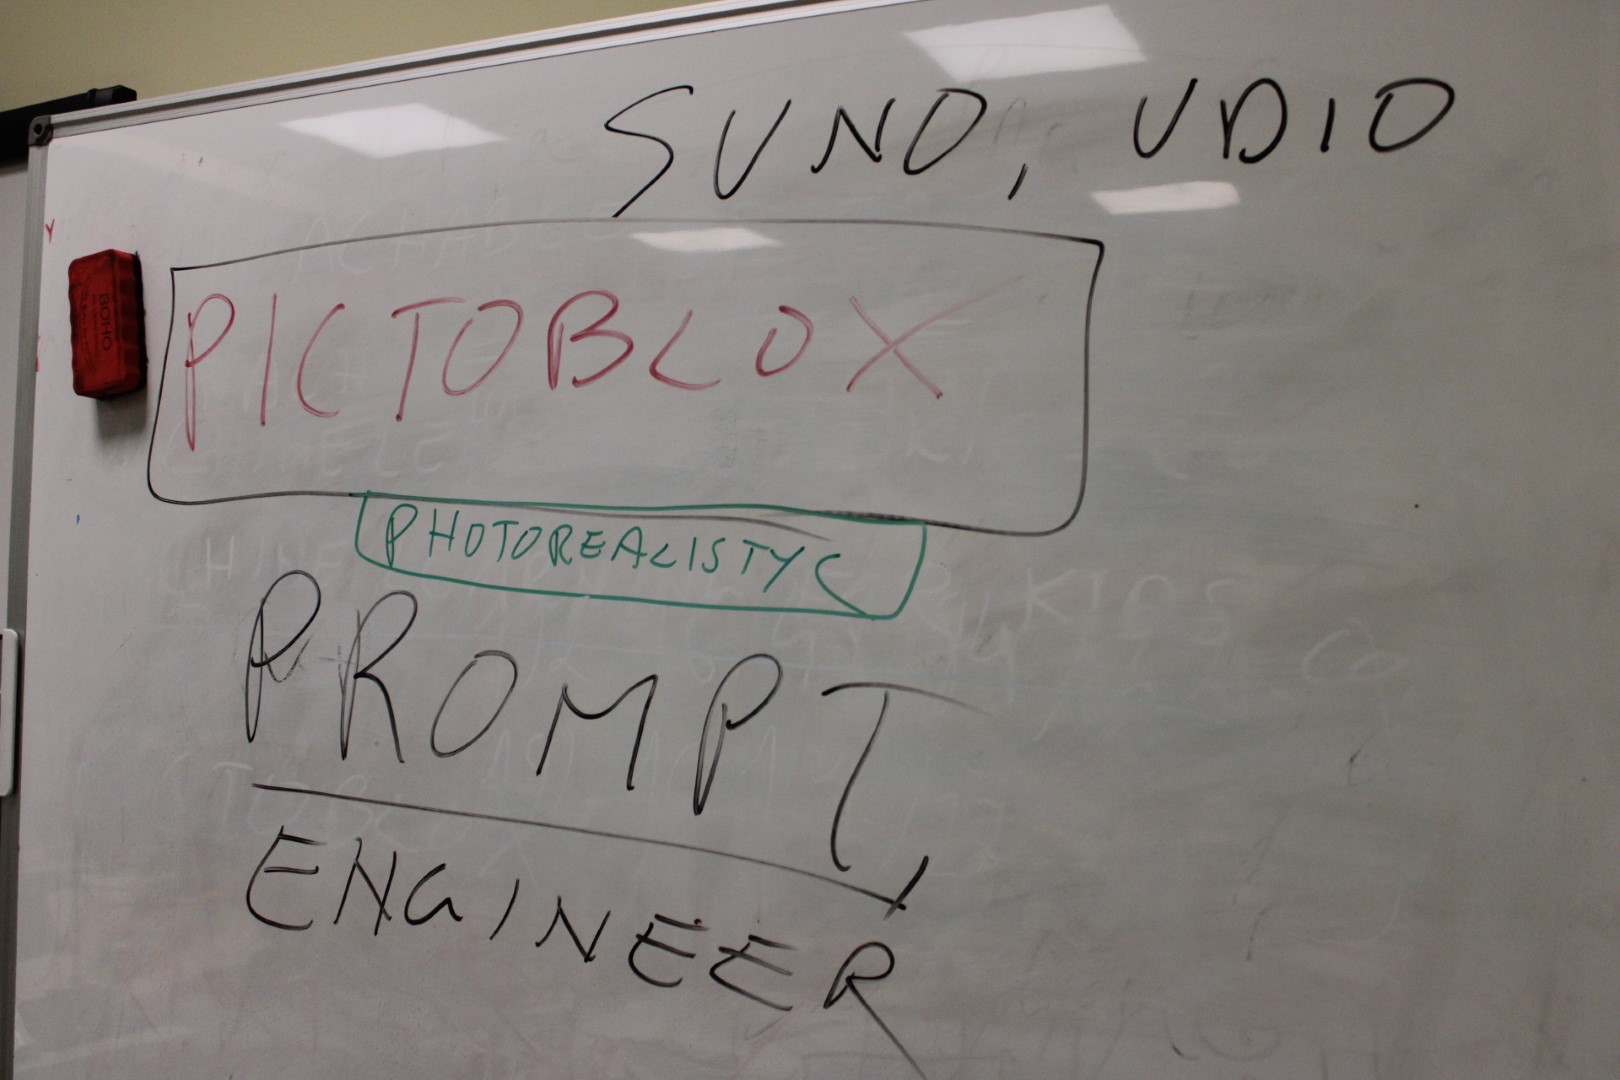 SUNO, UDIO
PICTOBLOX
PHOTOREALISTYC
PROMPT
ENGINEER
BOHO